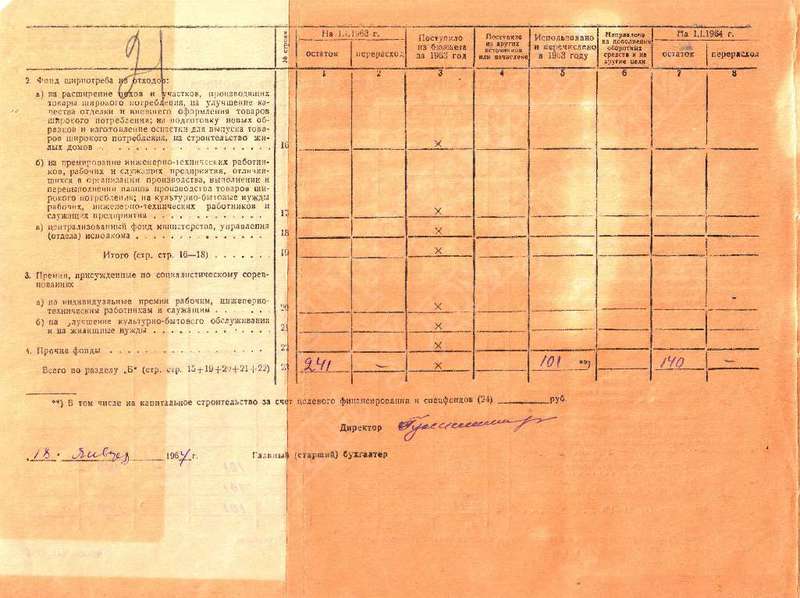 21
№ строки
На 1.1.1963 г.
остаток
перерасход
Поступило
из бюджета
за 1963 год
Поступило
из других
источников
или начислено
Использовано
и перечислено
в 1963 году
Направлено
на пополнение
оборотных
средств и на
другие цели
На 1.1.1964 г.
остаток
перерасход
1 2 3 4 5 6 7 8
2. Фонд ширпотреба из отходов:
а) на расширение цехов и участков, производящих
товары широкого потребления, на улучшение ка-
чества отделки и внешнего оформления товаров
широкого потребления; на подготовку новых об-
разцов и изготовление оснастки для выпуска това-
ров широкого потребления, на строительство жи-
лых домов 16 ×
б) на премирование инженерно-технических работни-
ков, рабочих и служащих предприятия, отличив-
шихся в организации производства, выполнении и
перевыполнении планов производства товаров ши-
рокого потребления; на культурно-бытовые нужды
рабочих, инженерно-технических работников и
служащих предприятия 17 ×
в) централизованный фонд министерств, управления
(отдела) исполкома 18 ×
Итого (стр. стр. 16—18) 19 ×
3. Премии, присужденные по социалистическому сорев-
нованию
а) на индивидуальные премии рабочим, инженерно-
техническим работникам и служащим 20 ×
б) на улучшение культурно-бытового обслуживания
и на жилищные нужды 21 ×
4. Прочие фонды 22 ×
Всего по разделу „Б“ (стр. стр. 15+19+20+21+22) 23 241 — × 101 **) 140 —
**) В том числе на капитальное строительство за счет целевого финансирования и спецфондов (24) руб.
Директор
18. января 1964 г. Главный (старший) бухгалтер